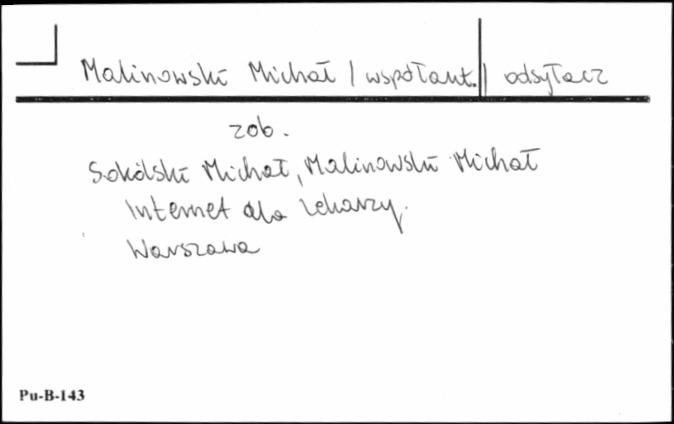 Malinowski Michał / współaut. / odsyłacz
zob.
Sokólski Michał, Malinowski Michał
Internet dla lekarzy.
Warszawa
Pu-B-143